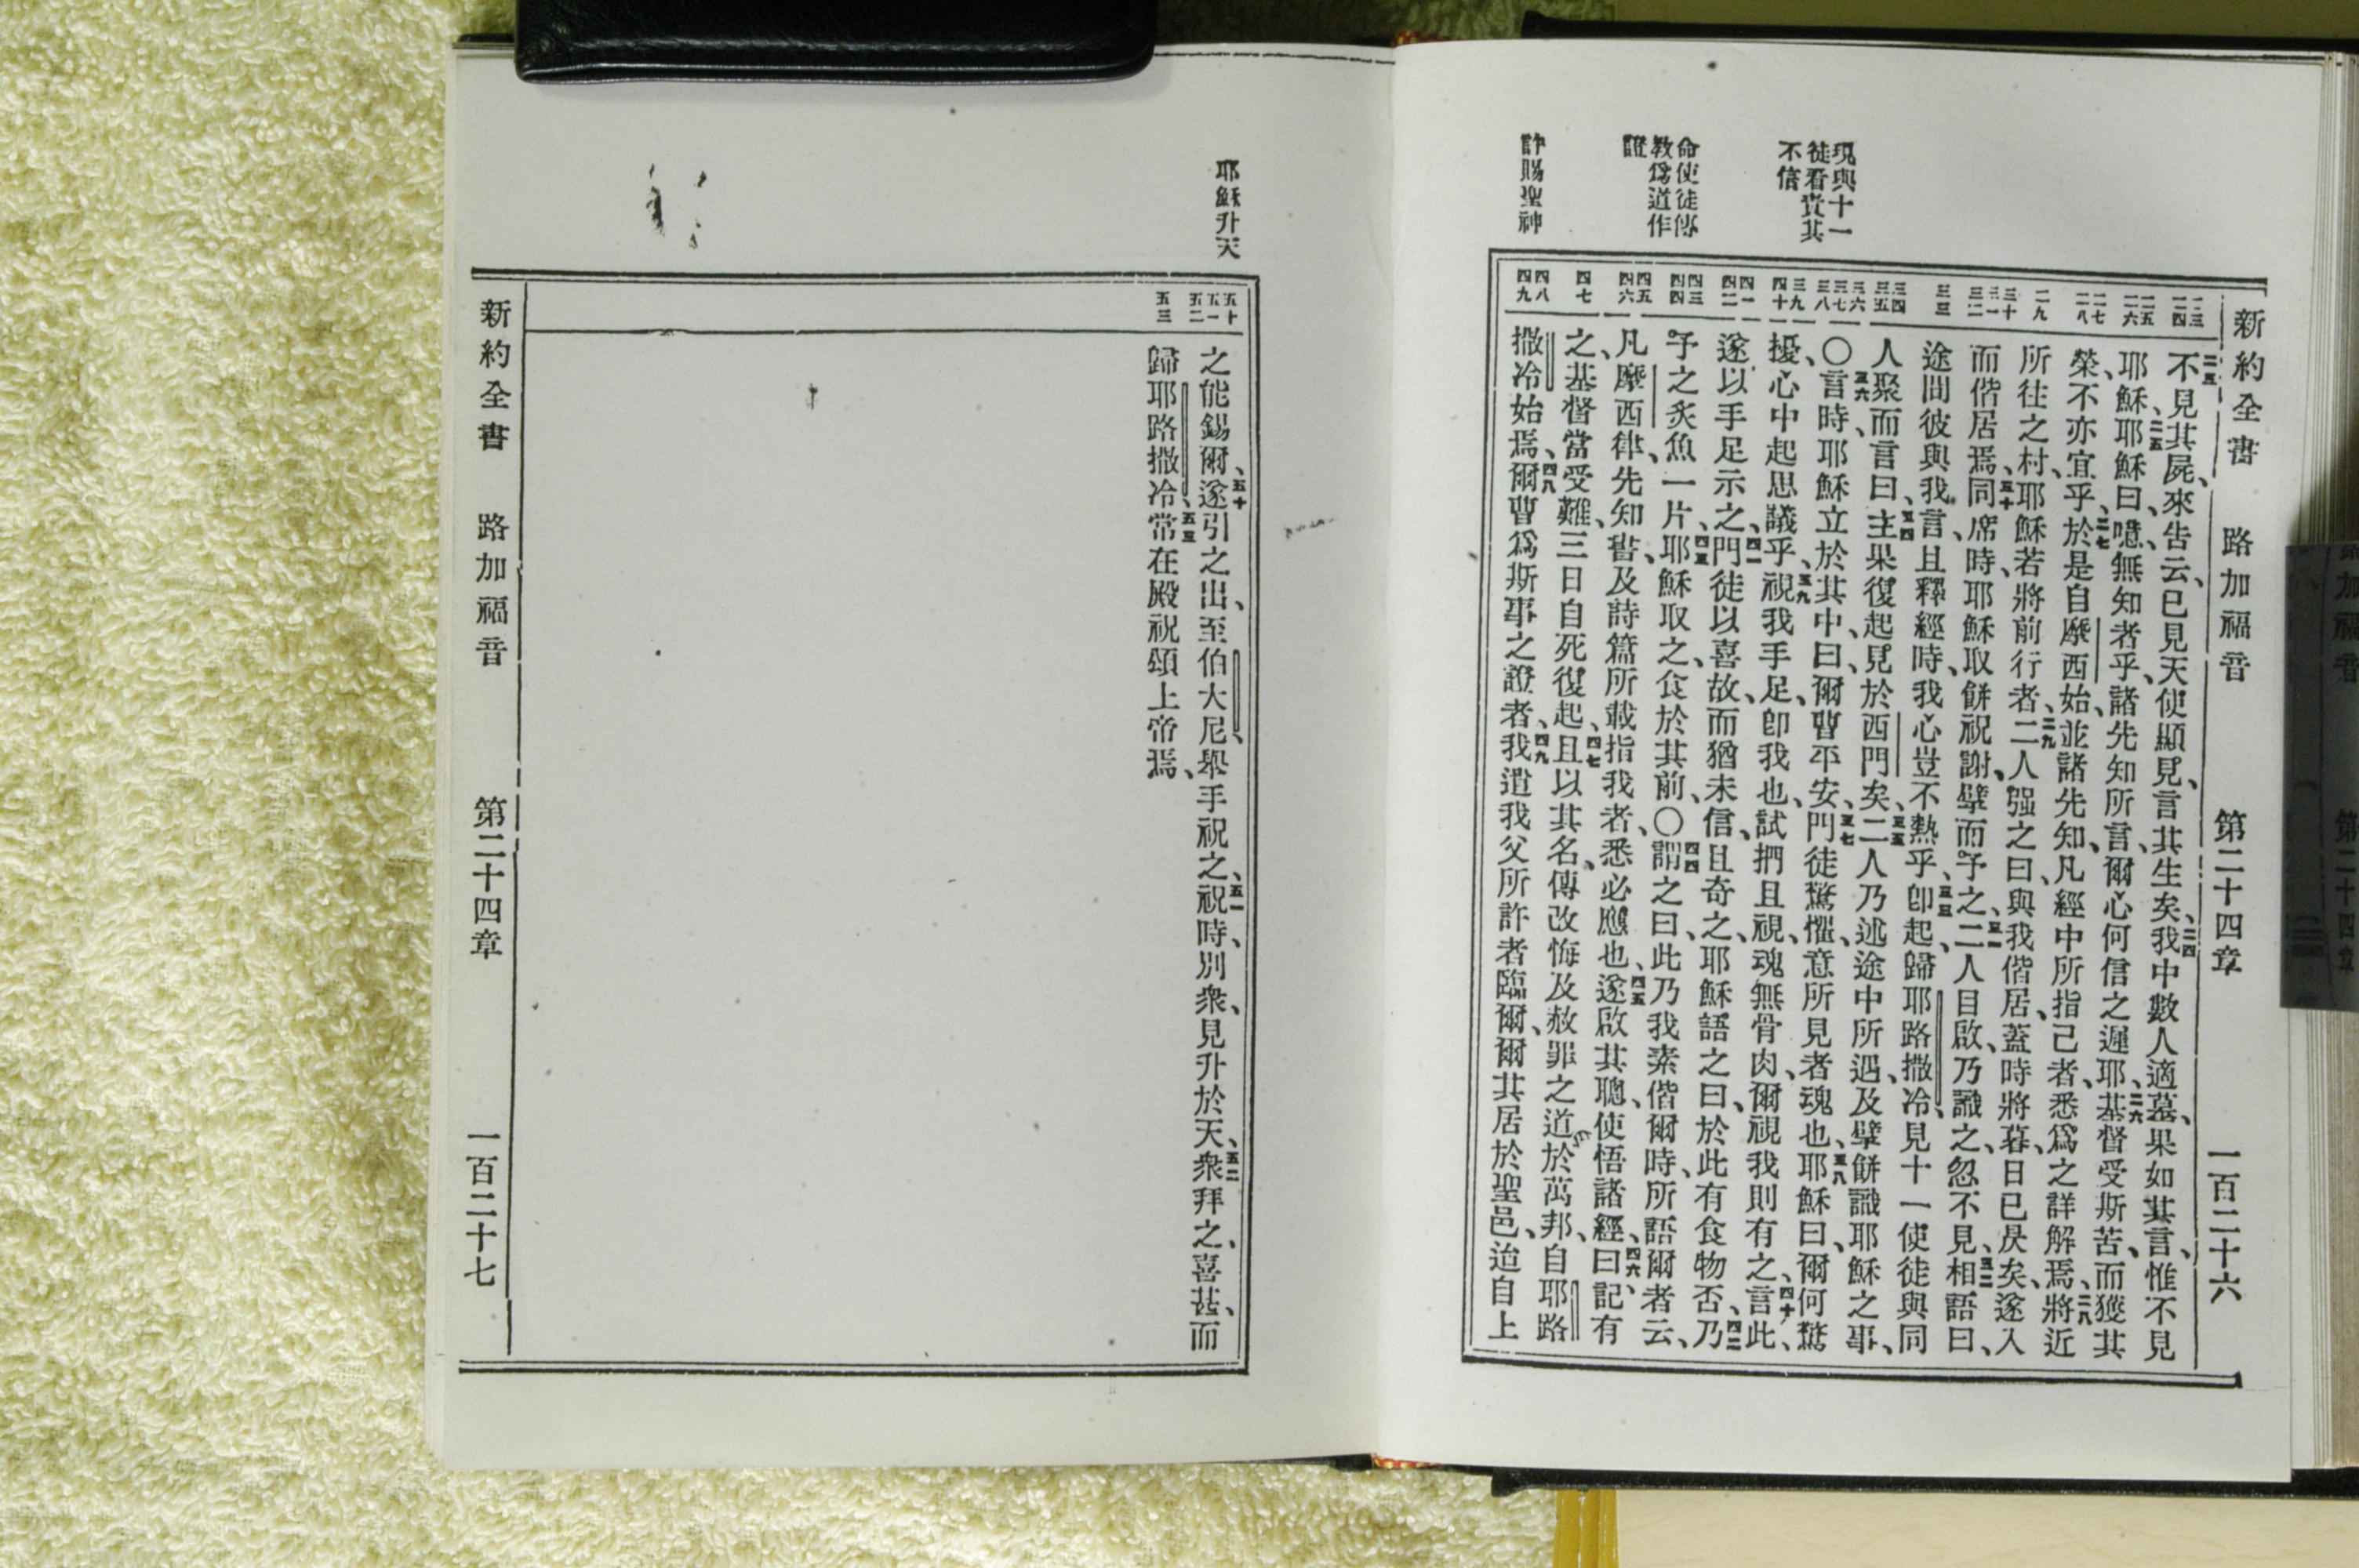 新約全書　路加福音　第二十四章　一百二十六
現與十一
徒看責其
不信
命使徒傳
教爲道作
證
許賜聖神
二三 二四
二五 二六
二七 二八
二九
三十 三一 三二
三三
三四 三五
三六 三七 三八
三九 四十
四一 四二
四三 四四
四五 四六
四七
四八 四九
不見其屍、來告云、已見天使顯見、言其生矣、二四我中數人適墓、果如其言、惟不見
耶穌、二五耶穌曰、噫、無知者乎、諸先知所言、爾心何信之遲耶、二六基督受斯苦、而獲其
榮、不亦宜乎、二七於是自摩西始、並諸先知、凡經中所指己者、悉爲之詳解焉、二八將近
所往之村、耶穌若將前行者、二九二人强之曰、與我偕居、蓋時將暮、日已昃矣、遂入
而偕居焉、三十同席時、耶穌取餅祝謝、擘而予之、三一二人目啟、乃識之、忽不見、三二相語曰、
途間彼與我言、且釋經時、我心豈不熱乎、三三卽起、歸耶路撒冷、見十一使徒與同
人聚而言曰、三四主果復起、見於西門矣、三五二人乃述途中所遇、及擘餅識耶穌之事、
〇三六言時、耶穌立於其中曰、爾曹平安、三七門徒驚懼、意所見者魂也、三八耶穌曰、爾何驚
擾、心中起思議乎、三九視我手足、卽我也、試捫且視、魂無骨肉、爾視我則有之、四十言此、
遂以手足示之、四一門徒以喜故、而猶未信、且奇之、耶穌語之曰、於此有食物否、四二乃
予之炙魚一片、四三耶穌取之、食於其前、〇四四謂之曰、此乃我素偕爾時、所語爾者云、
凡摩西律、先知書、及詩篇所載指我者、悉必應也、四五遂啟其聰、使悟諸經、四六曰、記有
之、基督當受難、三日自死復起、四七且以其名、傳改悔及赦罪之道於萬邦、自耶路
撒冷始焉、四八爾曹爲斯事之證者、四九我遣我父所許者臨爾、爾其居於聖邑、迨自上
耶穌升天
五十 五一 五二
五三
之能錫爾、五十遂引之出、至伯大尼、舉手祝之、五一祝時、別衆、見升於天、五二衆拜之、喜甚、而
歸耶路撒冷、五三常在殿祝頌上帝焉、
新約全書　路加福音　第二十四章　一百二十七